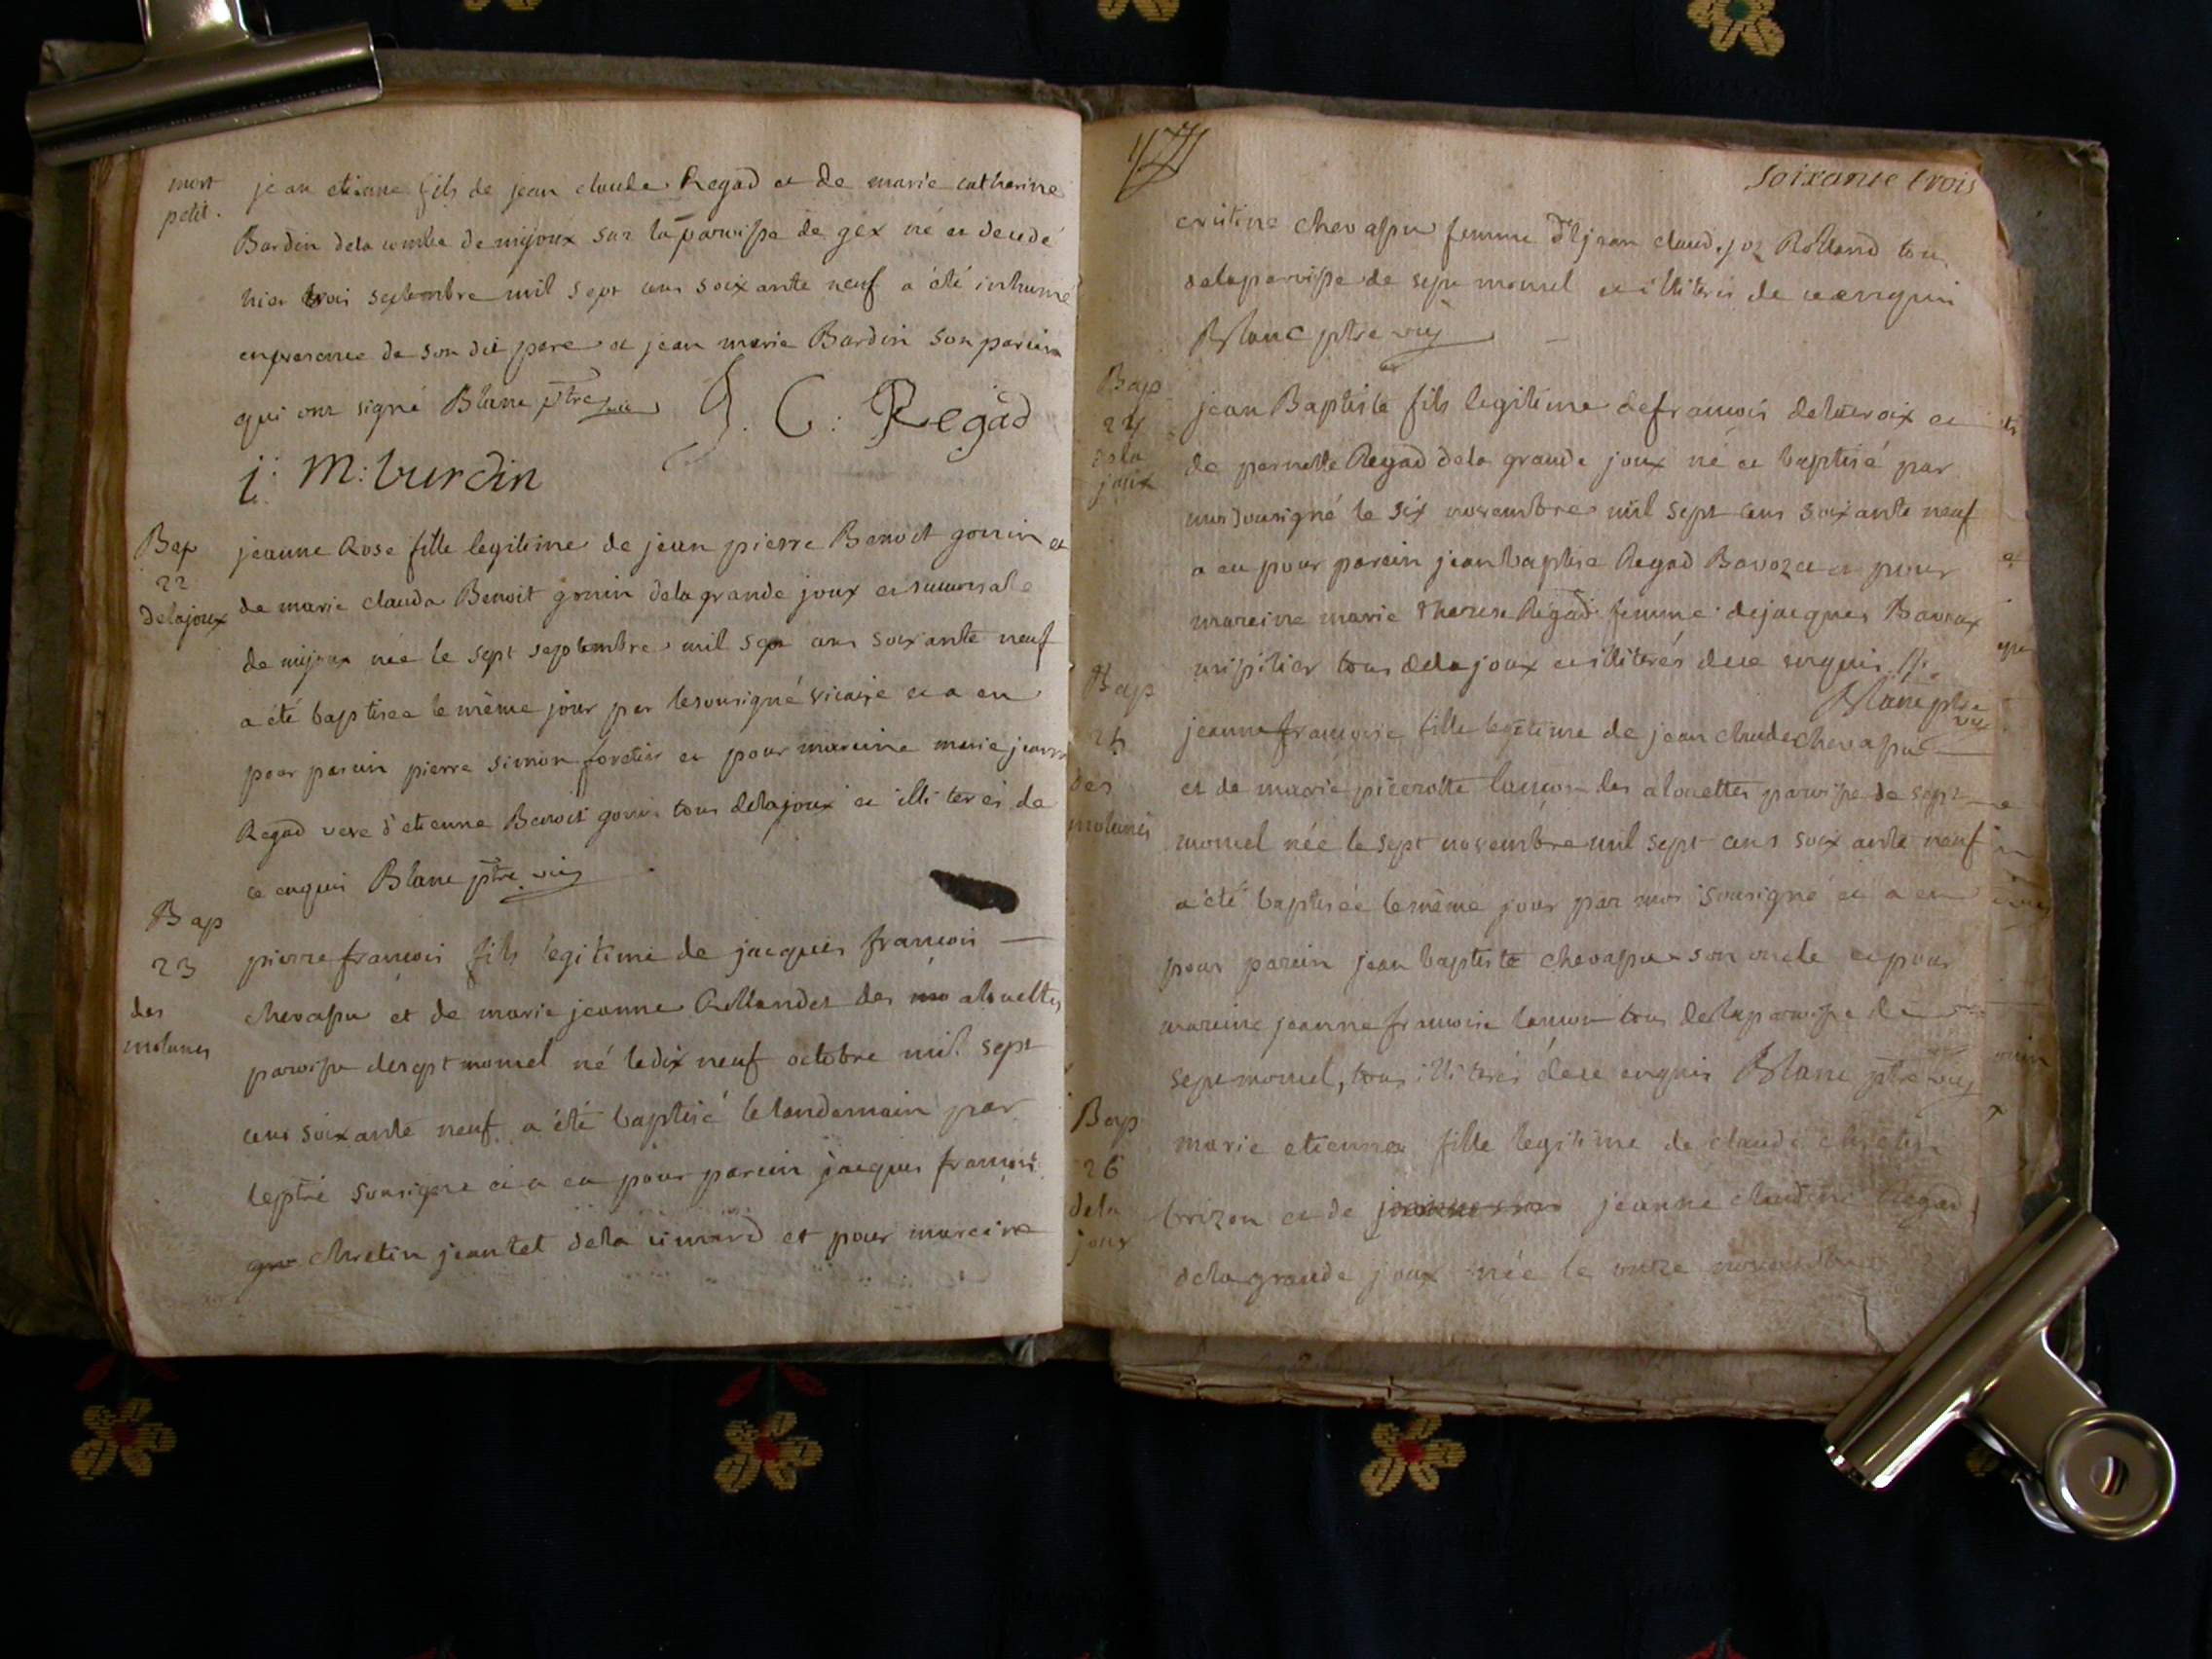 mort
petit.
jean etienne fils de jean claude Regad et de marie catherine
Bardin dela combe de mijoux sur la paroisse de gex né et decedé
hier trois septembre mil sept cens soixante neuf a été inhumé
enpresence de son dit pere et jean marie Bardin son parein
qui ont signé Blanc ptre vic J. C: Regad
j: M: burdin
Bap
22
delajoux
jeanne Rose fille legitime de jean pierre Benoit gonin et
de marie clauda Benoit gonin dela grande joux et succursale
de mijoux née le sept septembre mil sept cens soixante neuf
a été baptisea le même jour par lesousigné vicaire et a eu
pour parein pierre simon foretier et pour mareine marie jeanne
Regad veve d'etienne Benoit gonin tous delajoux et illiterés de
ce enquis Blanc ptre vic
Bap
23
des
molunes
pierre francois fils legitime de jacques francois
chevassu et de marie jeanne Rollandet des mo alouettes
paroisse desept moncel né ledix neuf octobre mil sept
cens soixante neuf a été baptisé le landemain par
leptre sousigné et a eu pour parein jacques francois
chretin jeantet dela simard et pour mareine
1771
soixante trois
cristine chevassu femme jean claude joz Rolland tous
delaparoisse de sept moncel et illiterés de ce enquis
Blanc ptre vic
Bap
24
dela
joux
jean Baptiste fils legitime defrancois delacroix et
de pernette Regad dela grande joux né et baptisé par
moi sousigné le six novembre mil sept cens soixante neuf
a eu pour parein jean baptiste Regad Bavozet et pour
mareine marie therese Regad femme dejacques Bavoux
missilier tous delajoux et illiterés dece enquis
Blanc ptre
vic
Bap
25
des
molunes
jeanne francoise fille legitime de jean claude chevassu
et de marie pierrotte lancon des alouettes paroisse de sept
moncel née le sept novembre mil sept cens soixante neuf
a été baptisée lemême jour par moi sousigné et a eu
pour parein jean baptiste chevassu son oncle et pour
mareine jeanne francoise lancon tous delaparoisse de
sept moncel, tous illiterés dece enquis Blanc ptre vic
Bap
26
dela
joux
marie etienna fille legitime de claude chretin
brizon et de jeanne claudine Regad
dela grande joux née le onze novembre